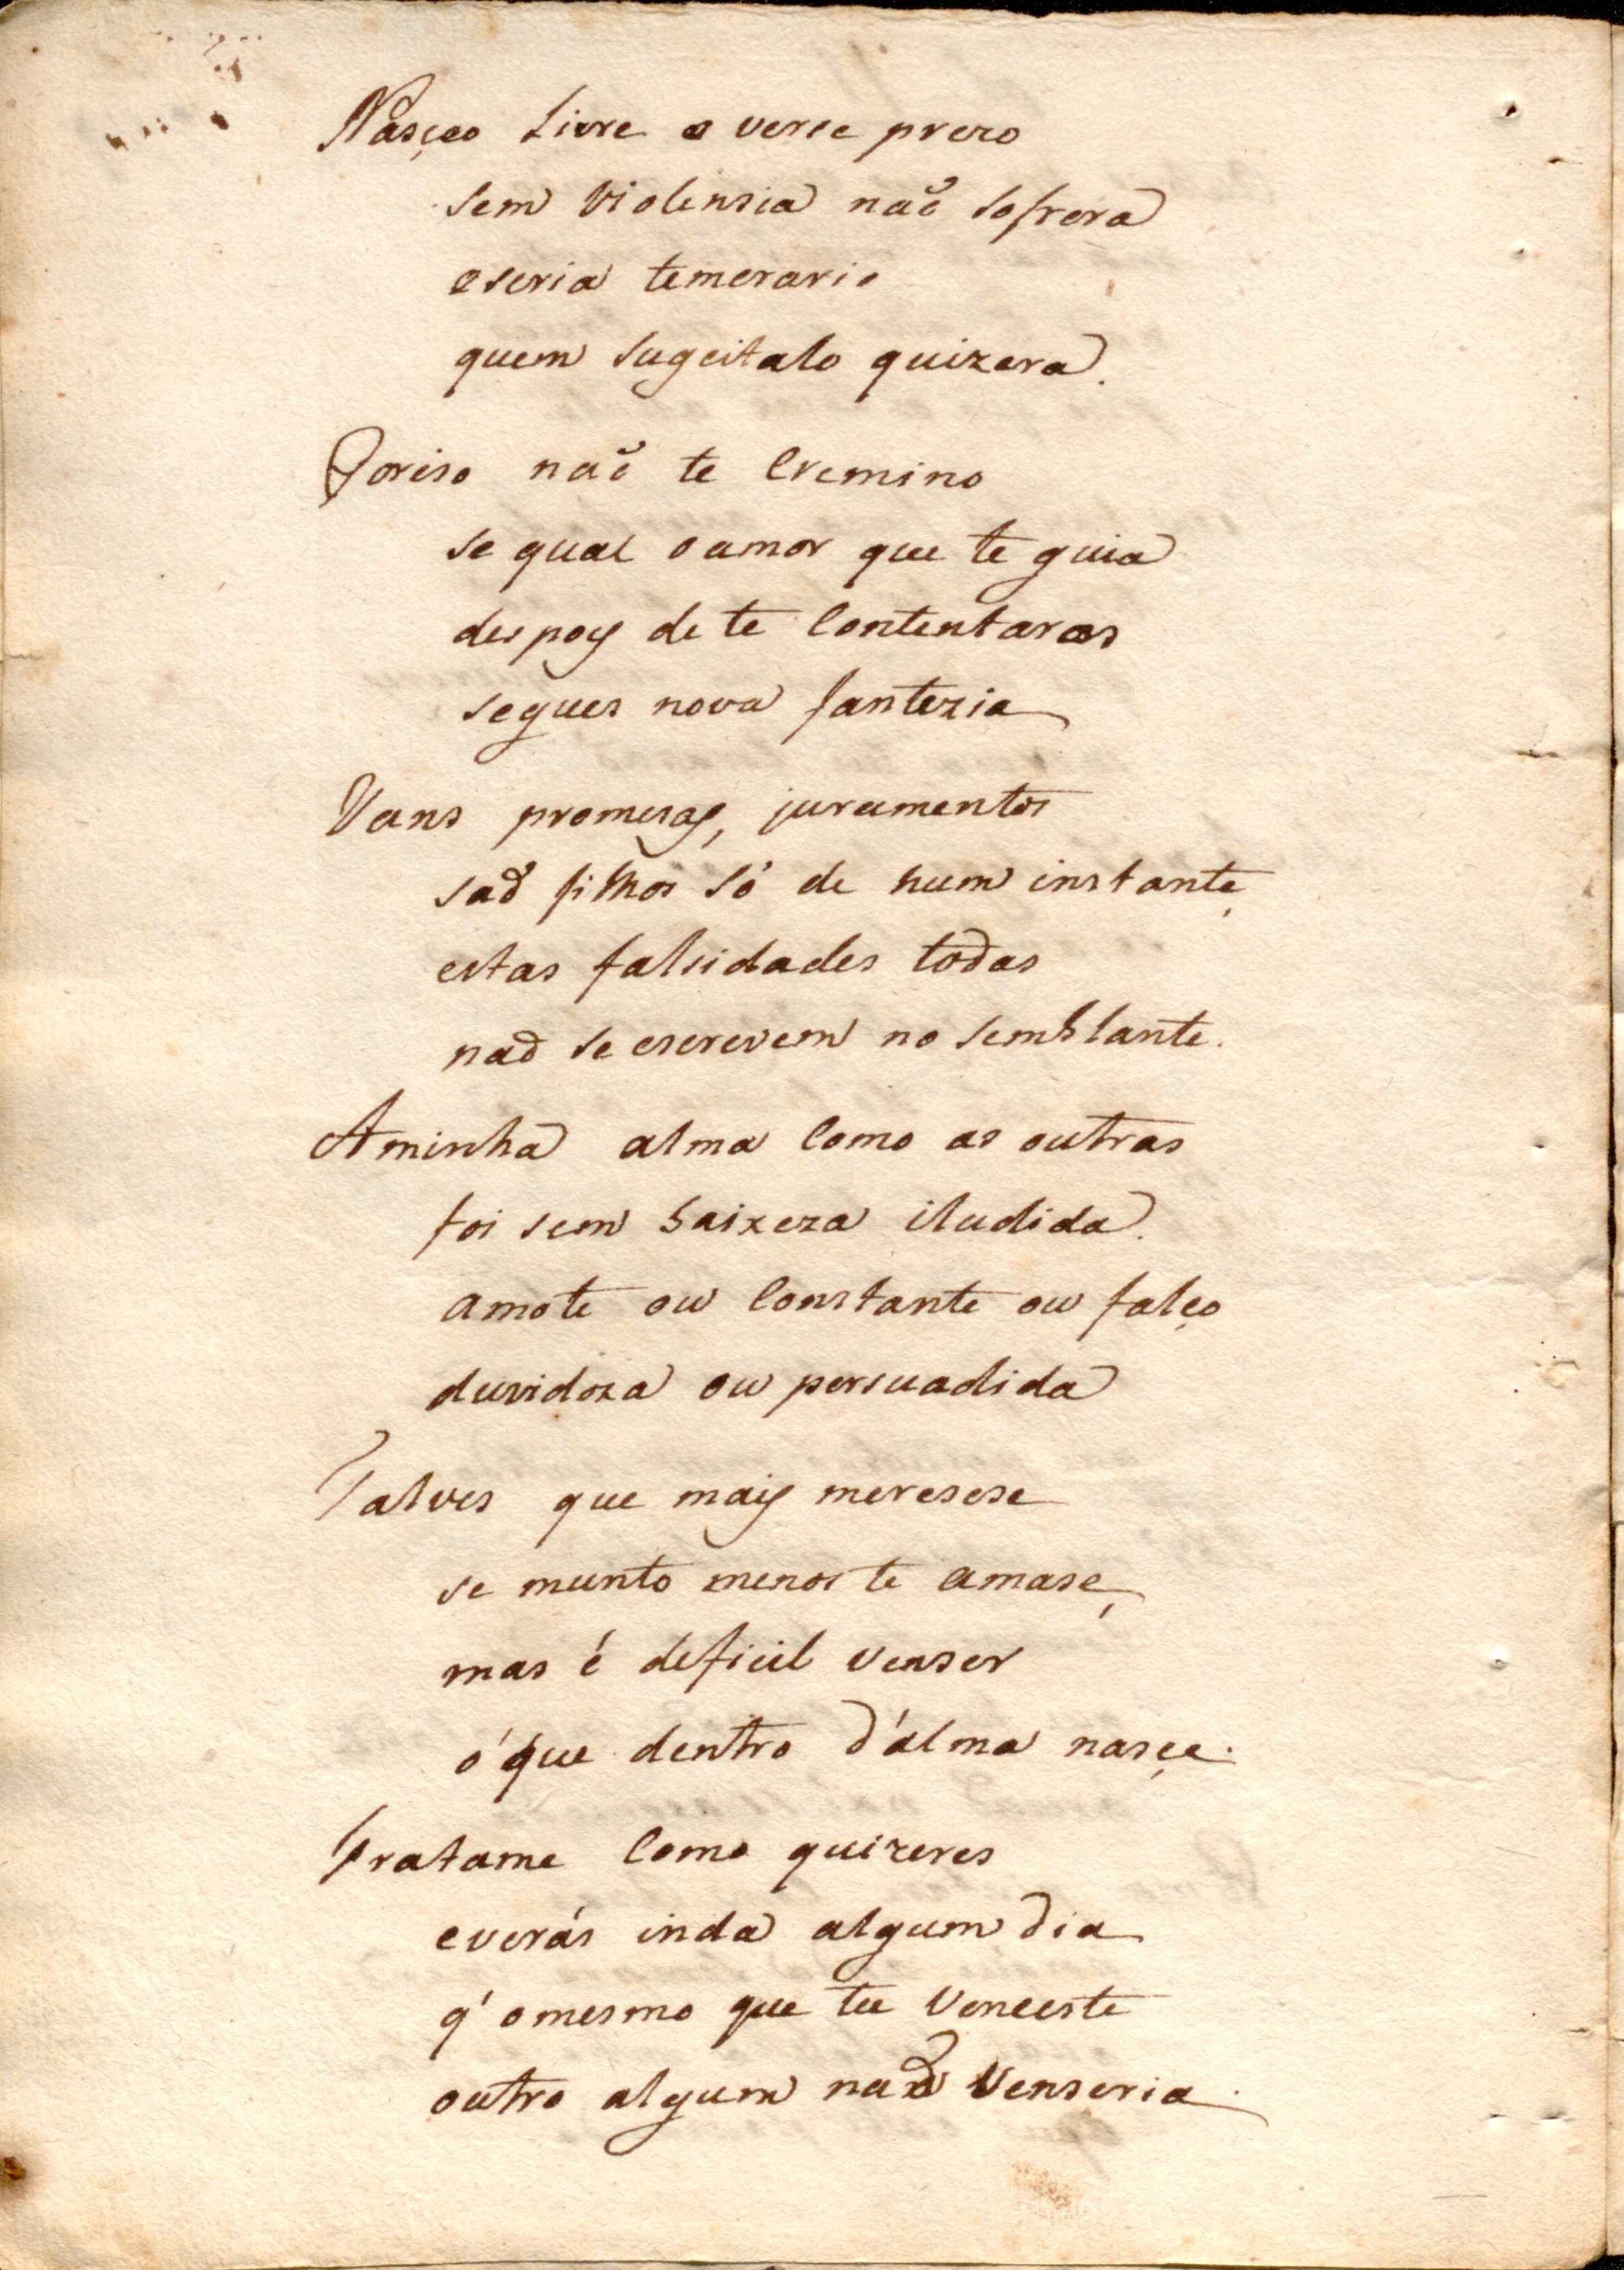 Nasçeo Livre e verse prezo
sem violensia naõ sofrera
e seria temerario
quem sugeitalo quizera.
Poriso naõ te Cremino
se qual o amor que te guia
despoys de te Contentares
segues nova fantezia
Vans promesas, juramentos
saõ filhos só de hum instante,
estas falsidades todas
naõ se escrevem no semblante.
A minha alma Como as outras
foi sem baixeza iludida.
amote ou Constante ou falço
duvidoza ou persuadida
Talves que mays meresese
se munto menos te amase,
mas é deficil venser
ó que dentro d'alma nasçe.
Tratame Como quizeres
e verás inda algum dia
q' o mesmo que tu Venceste
outro algum naõ Venseria.